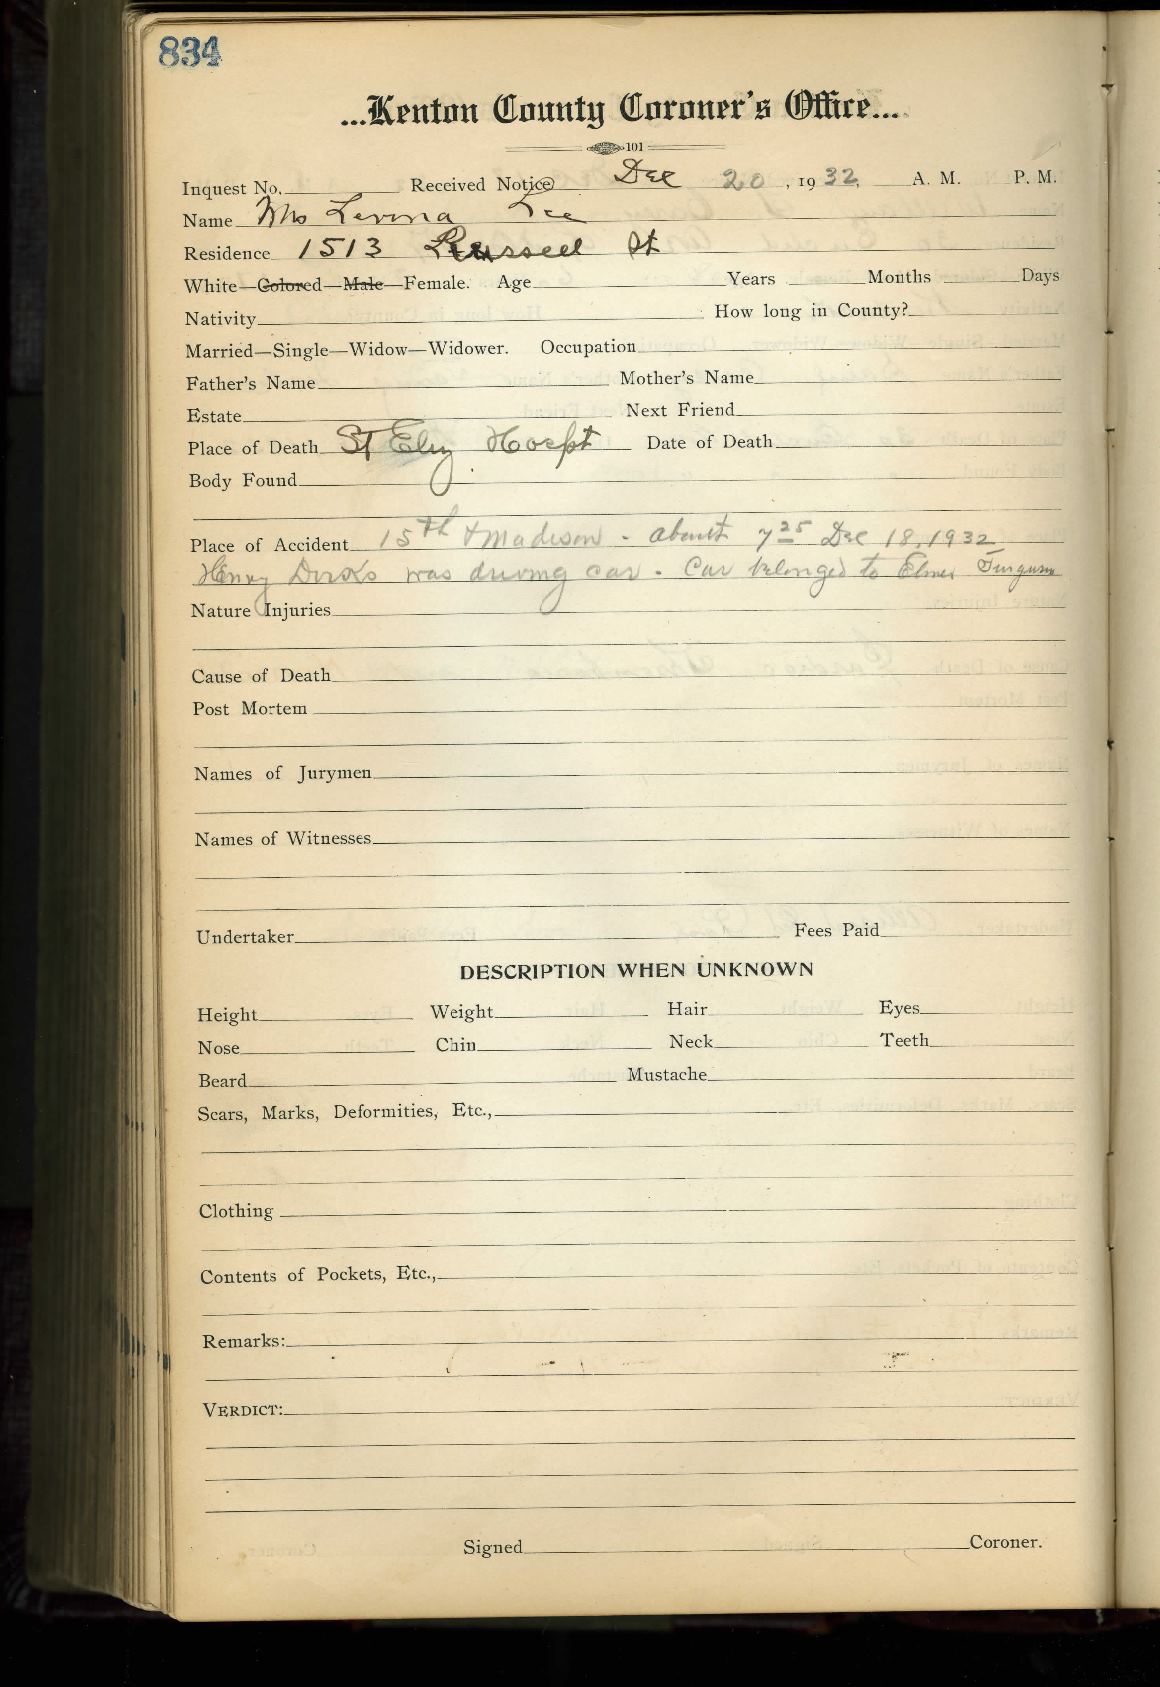 834
...Kenton County Coroner's Office...
101
Inquest No. Received Notice Dec 20, 1932, A. M. P. M.
Name Mrs Lee
Residence 1513 Russell St
White—Colored—Male—Female. Age Years Months Days
Nativity How long in County?
Married—Single—Widow—Widower. Occupation
Father's Name Mother's Name
Estate Next Friend
Place of Death St Eliz Hospt Date of Death
Body Found
Place of Accident 15th & Madison - about 7 25 Dec 18, 1932
Henry was driving car - Car belonged to Elmer
Nature Injuries
Cause of Death
Post Mortem
Names of Jurymen
Names of Witnesses
Undertaker Fees Paid
DESCRIPTION WHEN UNKNOWN
Height Weight Hair Eyes
Nose Chin Neck Teeth
Beard Mustache
Scars, Marks, Deformities, Etc.,
Clothing
Contents of Pockets, Etc.,
Remarks:
VERDICT:
Signed Coroner.